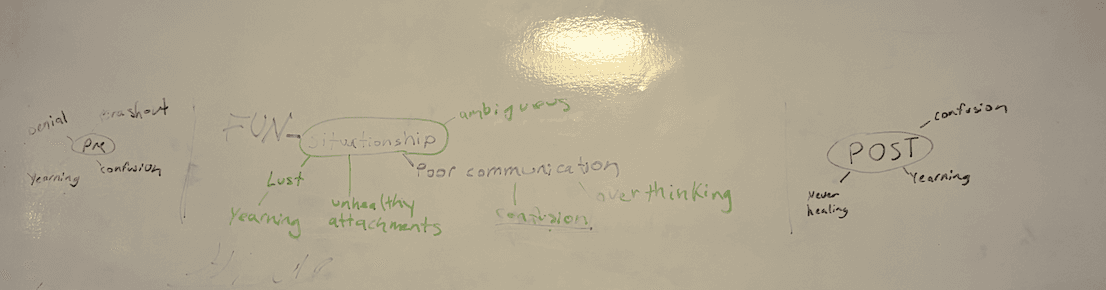 Denial
crashout
Pre
Yearning
confusion
FUN
Situationship
ambiguous
Lust
Yearning
unhealthy
attachments
Poor communication
confusion
over thinking
POST
confusion
Yearning
never
healing